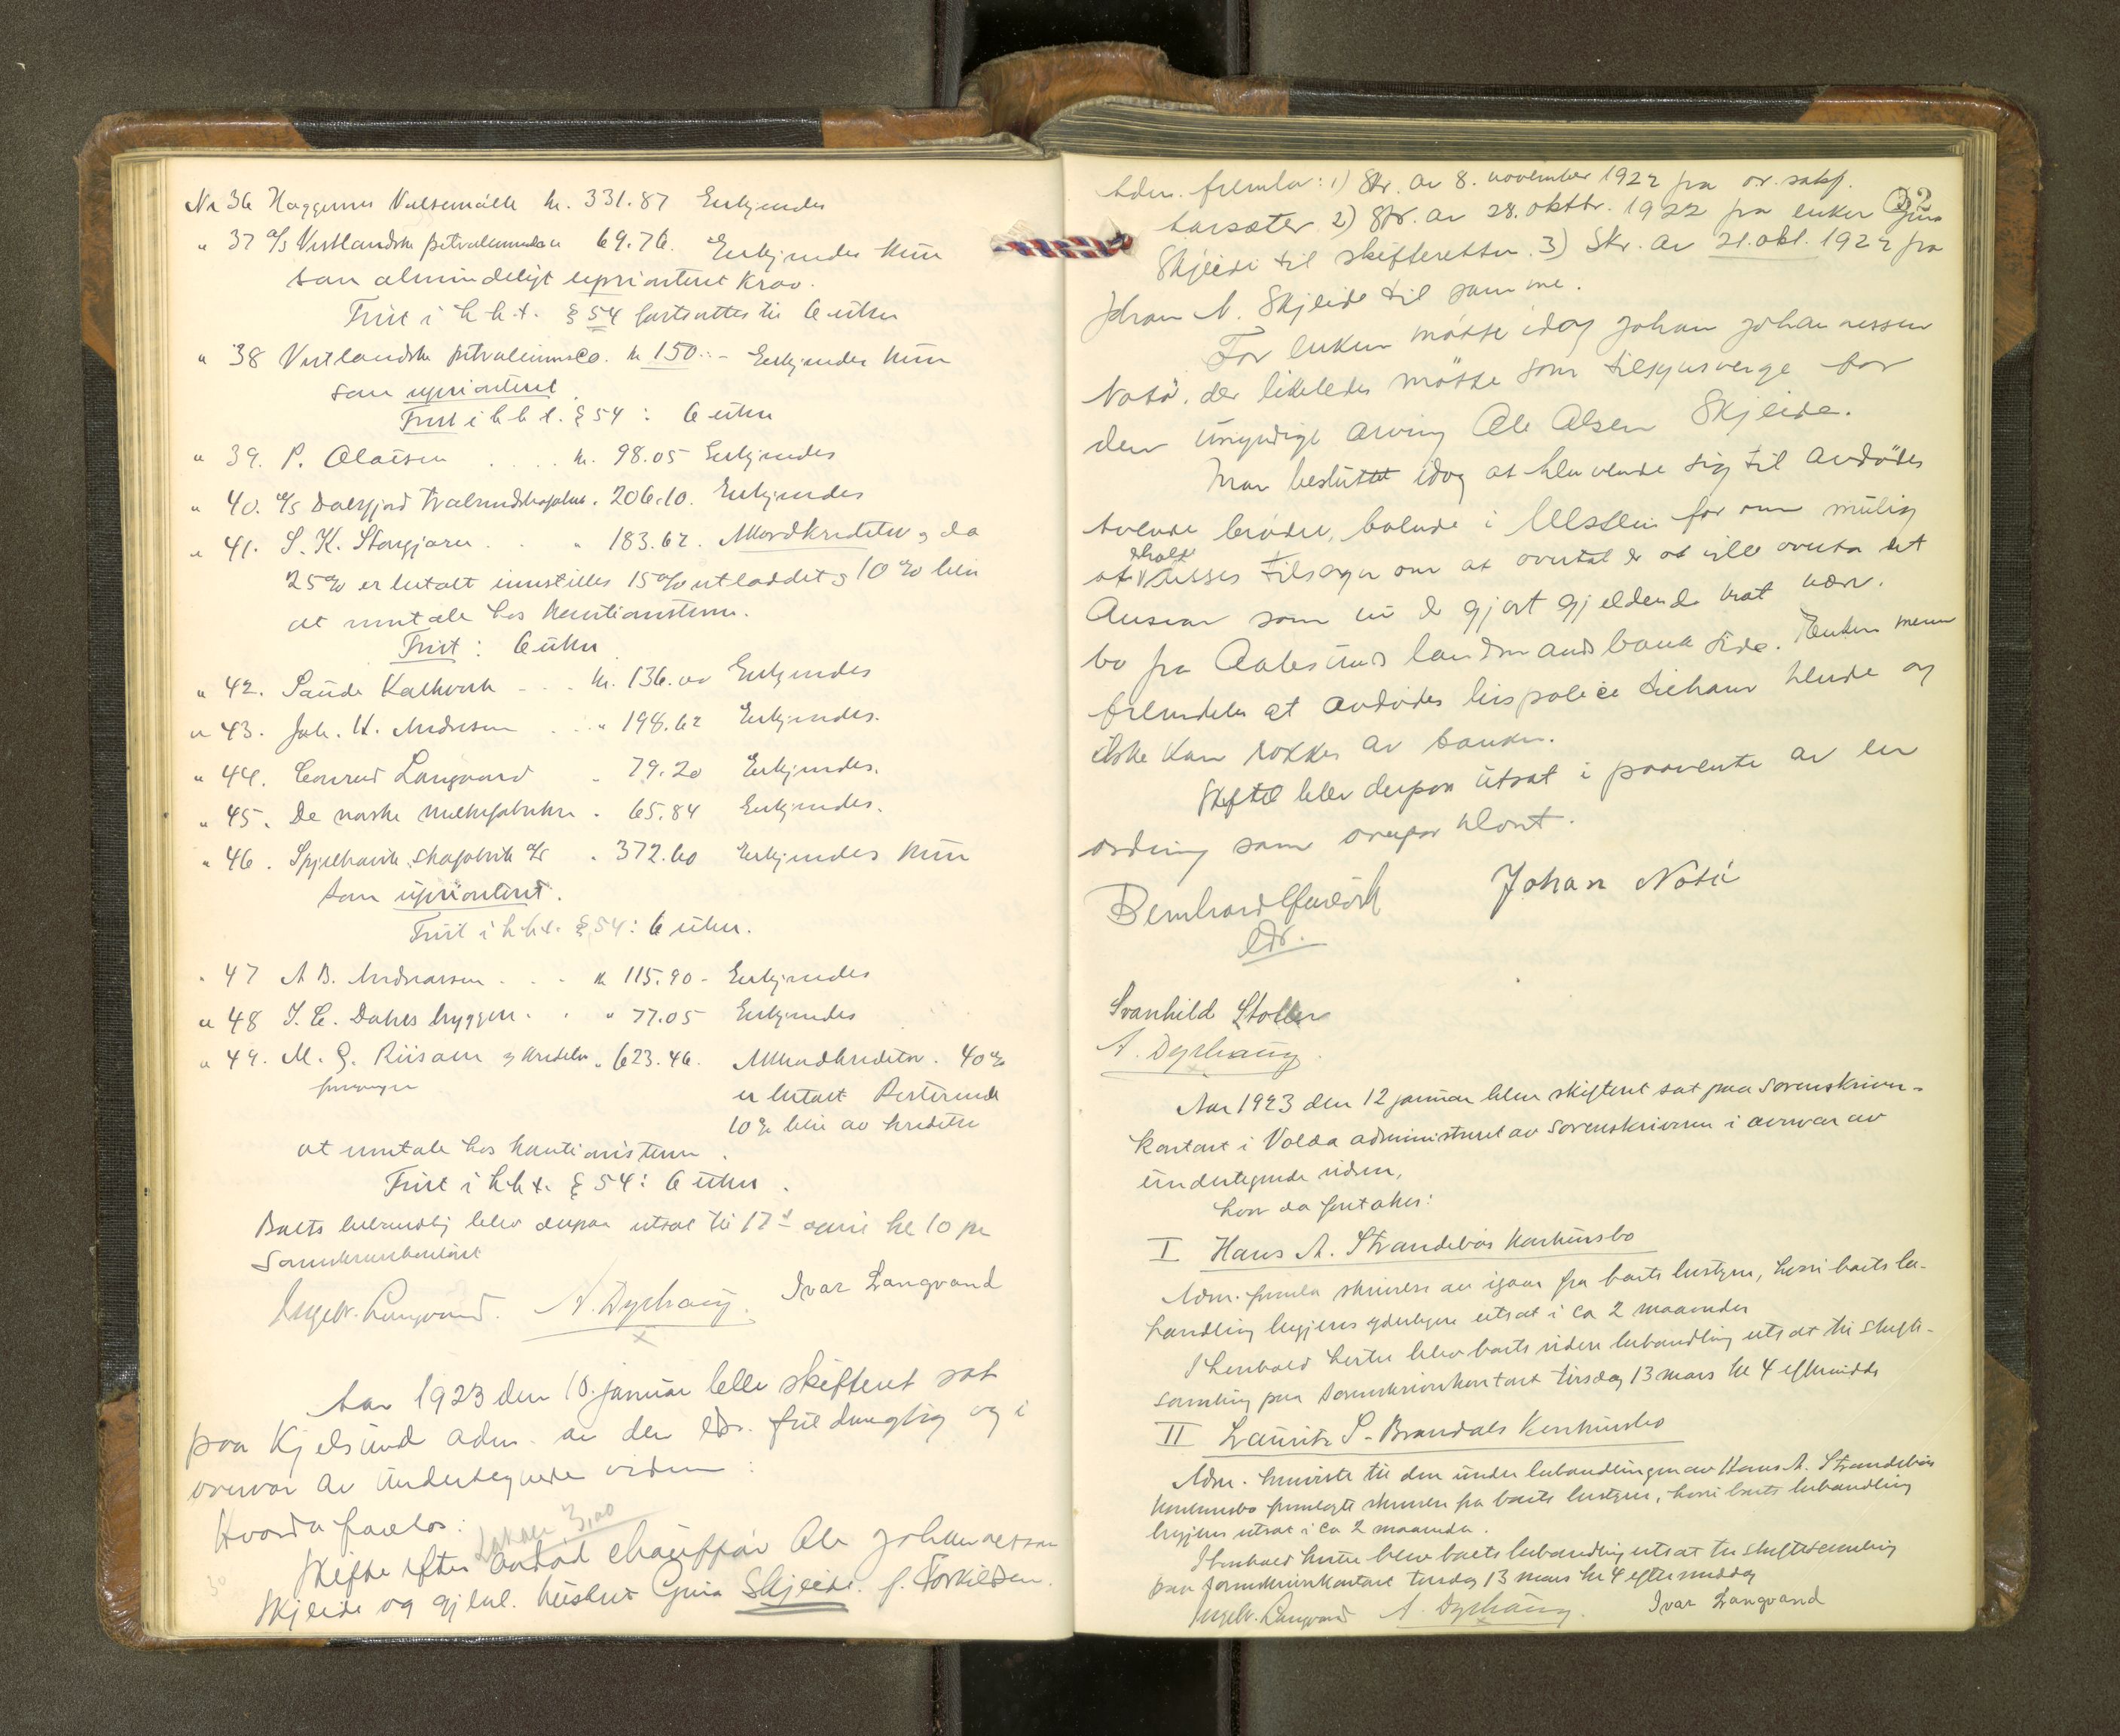 Nr 36 Haggernes Valsemølle kr. 331.87 Erkjendes
" 37 A/S Vestlandske petroleumsco 69.76. Erkjendes kun
som almindeligt uprioritert krav.
Frist i h.h.t. § 54 fortsættes til 6 uker
" 38 Vestlandske petroleumsco. kr 150.- Erkjendes kun
som uprioritert.
Frist i h.h.t. § 54: 6 uker
" 39. P. Olaisen . . . . kr. 98.05 Erkjendes
" 40. A/S Dalsfjord . 206.10. Erkjendes
" 41. S. K. Storgjære . . " 183.62. Akkordkreditor og da
25% er betalt innstilles 15% utloddet og 10% blir
at inntale hos kautionistene.
Frist: 6 uker
" 42. Saude Kalkverk - - . kr. 136.00 Erkjendes
" 43. Joh. H. Andresen . . . " 198.62 Erkjendes.
" 44. Conrad Langaard " 79.20 Erkjendes.
" 45. De norske melkefabriker . 65.84 Erkjendes.
" 46. Spjelkavik skofabrik A/S . 372.60 Erkjendes kun
som uprioritert.
Frist i h.h.t. § 54: 6 uker.
" 47 A B. Andreassen . . . kr 115.90 - Erkjendes
" 48 J. C. Dahls bryggeri . . " 77.05 Erkjendes
" 49. M. G. Riisøen og kreditor . 623.46. Akkordkreditor. 40%
er betalt Resterende
10% blir av kreditor
at inntale hos kautionistene.
Frist i h.h.t. § 54: 6 uker.
Boets behandling blev derpaa utsat til 17d kl 10 paa
Sorenskriverkontoret
Ingebr. Langvand. A. Dyrhaug. Ivar Langvand
Aar 1923 den 10. januar blev skifteret sat
paa Kjelsund adm. av den edsv. fuldmægtig og i
overvær av undertegnede vidner:
Hvorda forelos:
Lokale 3,00
Skifte efter avdød chauffør Ole Johannessen
Skjeide og gjenl. hustru Gina Skjeide f. Torkildsen.
Adm. fremla: 1) Skr. av 8. november 1922 fra or. sakf.
Aarsæter 2) Skr. av 28. oktbr. 1922 fra enken Gina
Skjeide til skifteretten. 3) Skr. av 21. okt. 1922 fra
Johan N. Skjeide til samme.
For enken møtte idag Johan Johannessen
Nøtø, der likeledes møtte som tilsynsverge for
den umyndige arving Ole Olsen Skjeide.
Man besluttet idag at henvende sig til avdødes
tvende brødre, boende i Ulstein for om mulig
at erholde disses tilsagn om at overtat er at ville overta det
ansvar som nu er gjort gjeldende mot nærv.
bo fra Aalesunds landmandsbank side. Enken mener
fremdeles at avdødes livspolice tilkom hende og
ikke kan røkkes av banken.
Skiftet blev derpaa utsat i paavente av en
ordning som ovenfor nævnt.
Bernhard Johan Nøtø
edv.
Svanhild Stoller
A. Dyrhaug.
Aar 1923 den 12 januar blev skifteret sat paa sorenskriver-
kontoret i Volda administreret av sorenskriveren i overvær av
undertegnede vidner,
hvor da foretokes:
I Hans A. Strandebøs konkursbo
Adm. fremla skrivelse av igaar fra boets bestyrer, hvori boets be-
handling begjæres yderligere utsat i ca 2 maaneder
I henhold hertil blev boets videre behandling utsat til skifte-
samling paa sorenskriverkontoret tirsdag 13 mars kl 4 eftermiddag
II Lauritz S. Brandals konkursbo
Adm. henviste til den under behandlingen av Hans A. Strandebøs
konkursbo fremlagte skrivelse fra boets bestyrer, hvori boets behandling
begjæres utsat i ca 2 maaneder.
I henhold hertil blev boets behandling utsat til skiftesamling
paa sorenskriverkontoret tirsdag 13 mars kl 4 eftermiddag
Ingebr. Langvand A. Dyrhaug. Ivar Langvand